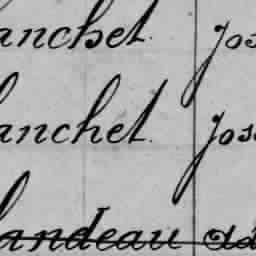 anchet. Jos
anchet. Jos
landeau Ad